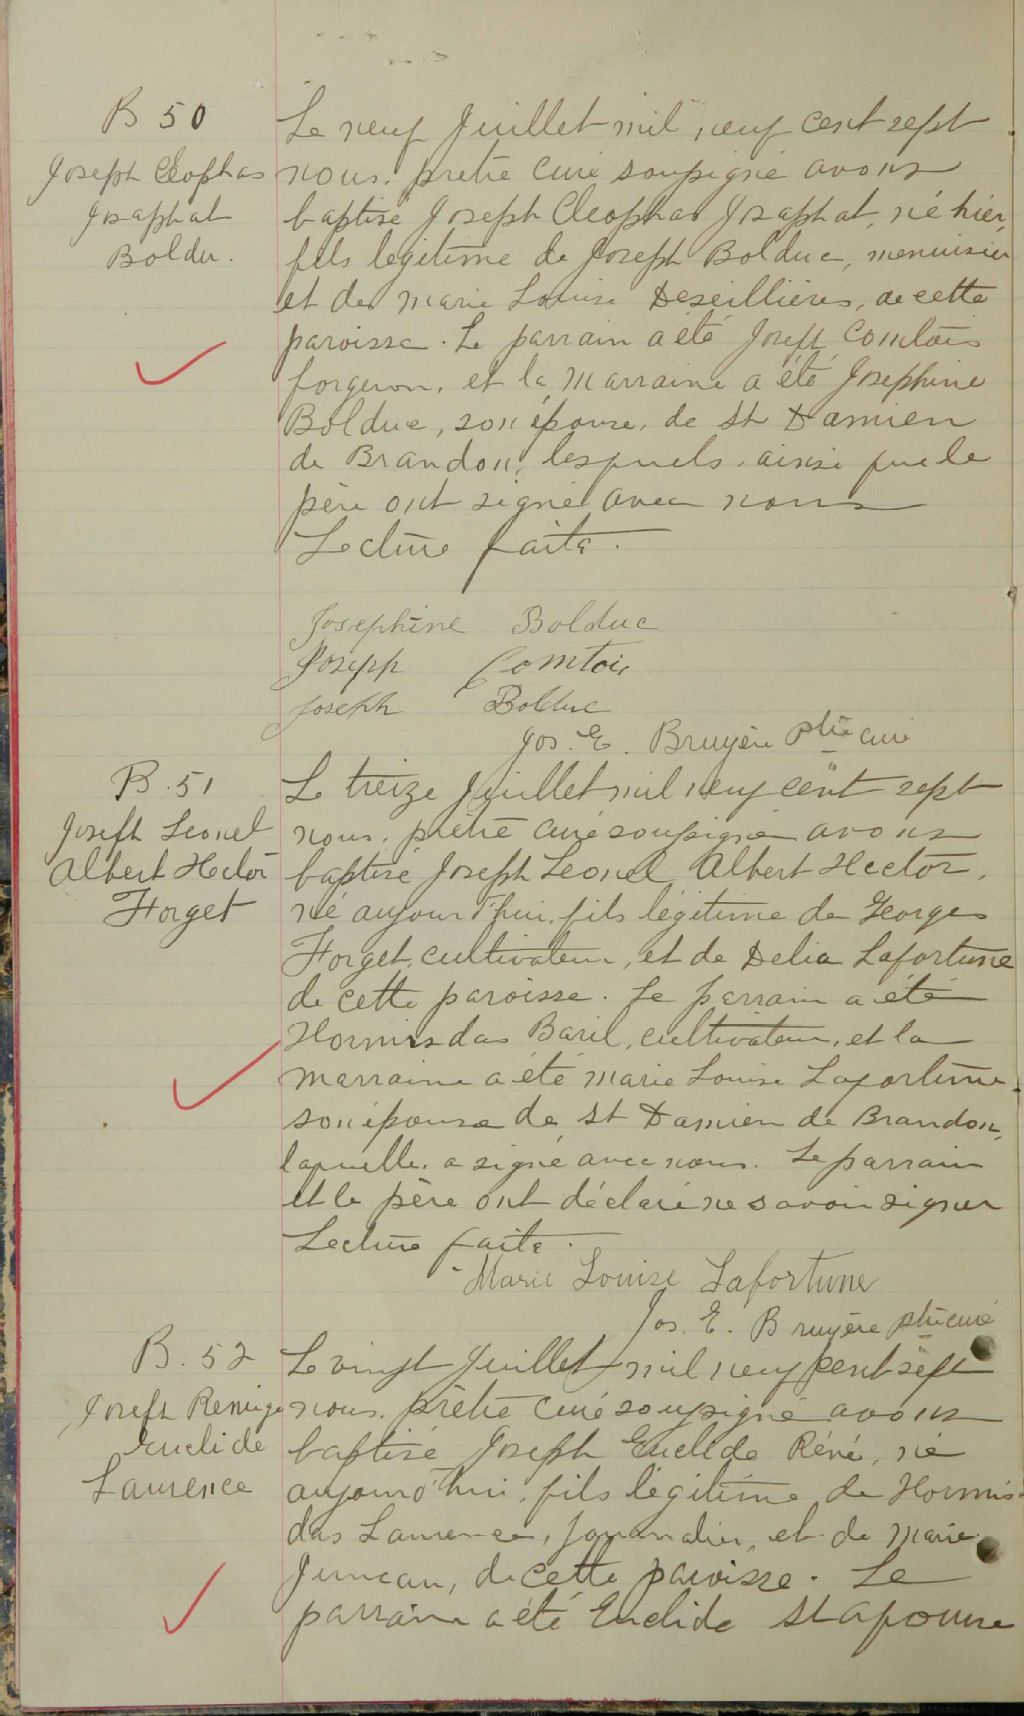 B 50
Joseph Cleophas
Josaphat
Boldu.
Le neuf Juillet mil neuf cent sept
nous, prêtre curé soussigné avons
baptisé Joseph Cleophas Josaphat, né hier,
fils légitime de Joseph Bolduc, menuisier
et de Marie Louise Deseillières, de cette
paroisse. Le parrain a été Joseph Comtois
forgeron, et la marraine a été Josephine
Bolduc, son épouse, de St Damien
de Brandon, lesquels, ainsi que le
père ont signé avec nous
Lecture faite.
Josephine Bolduc
Joseph Comtois
Joseph Bolduc
Jos. E. Bruyère ptre curé
B. 51
Joseph Leonel
Albert Hector
Forget
Le treize Juillet mil neuf cent sept
nous, prêtre curé soussigné avons
baptisé Joseph Leonel Albert Hector,
né aujourd'hui, fils légitime de Georges
Forget, cultivateur, et de Delia Lafortune
de cette paroisse. Le parrain a été
Hormisdas Baril, cultivateur, et la
marraine a été Marie Louise Lafortune
son épouse de St Damien de Brandon,
laquelle, a signé avec nous. Le parrain
et le père ont déclaré ne savoir signer
Lecture faite.
Marie Louise Lafortune
Jos. E. Bruyère ptre curé
B. 52
Joseph Remige
Euclide
Laurence
Le vingt Juillet mil neuf cent sept
nous, prêtre curé soussigné avons
baptisé Joseph Euclide Réné, né
aujourd'hui, fils légitime de Hormis-
das Laurence, journalier, et de Marie
Juneau, de cette paroisse. Le
parrain a été Euclide